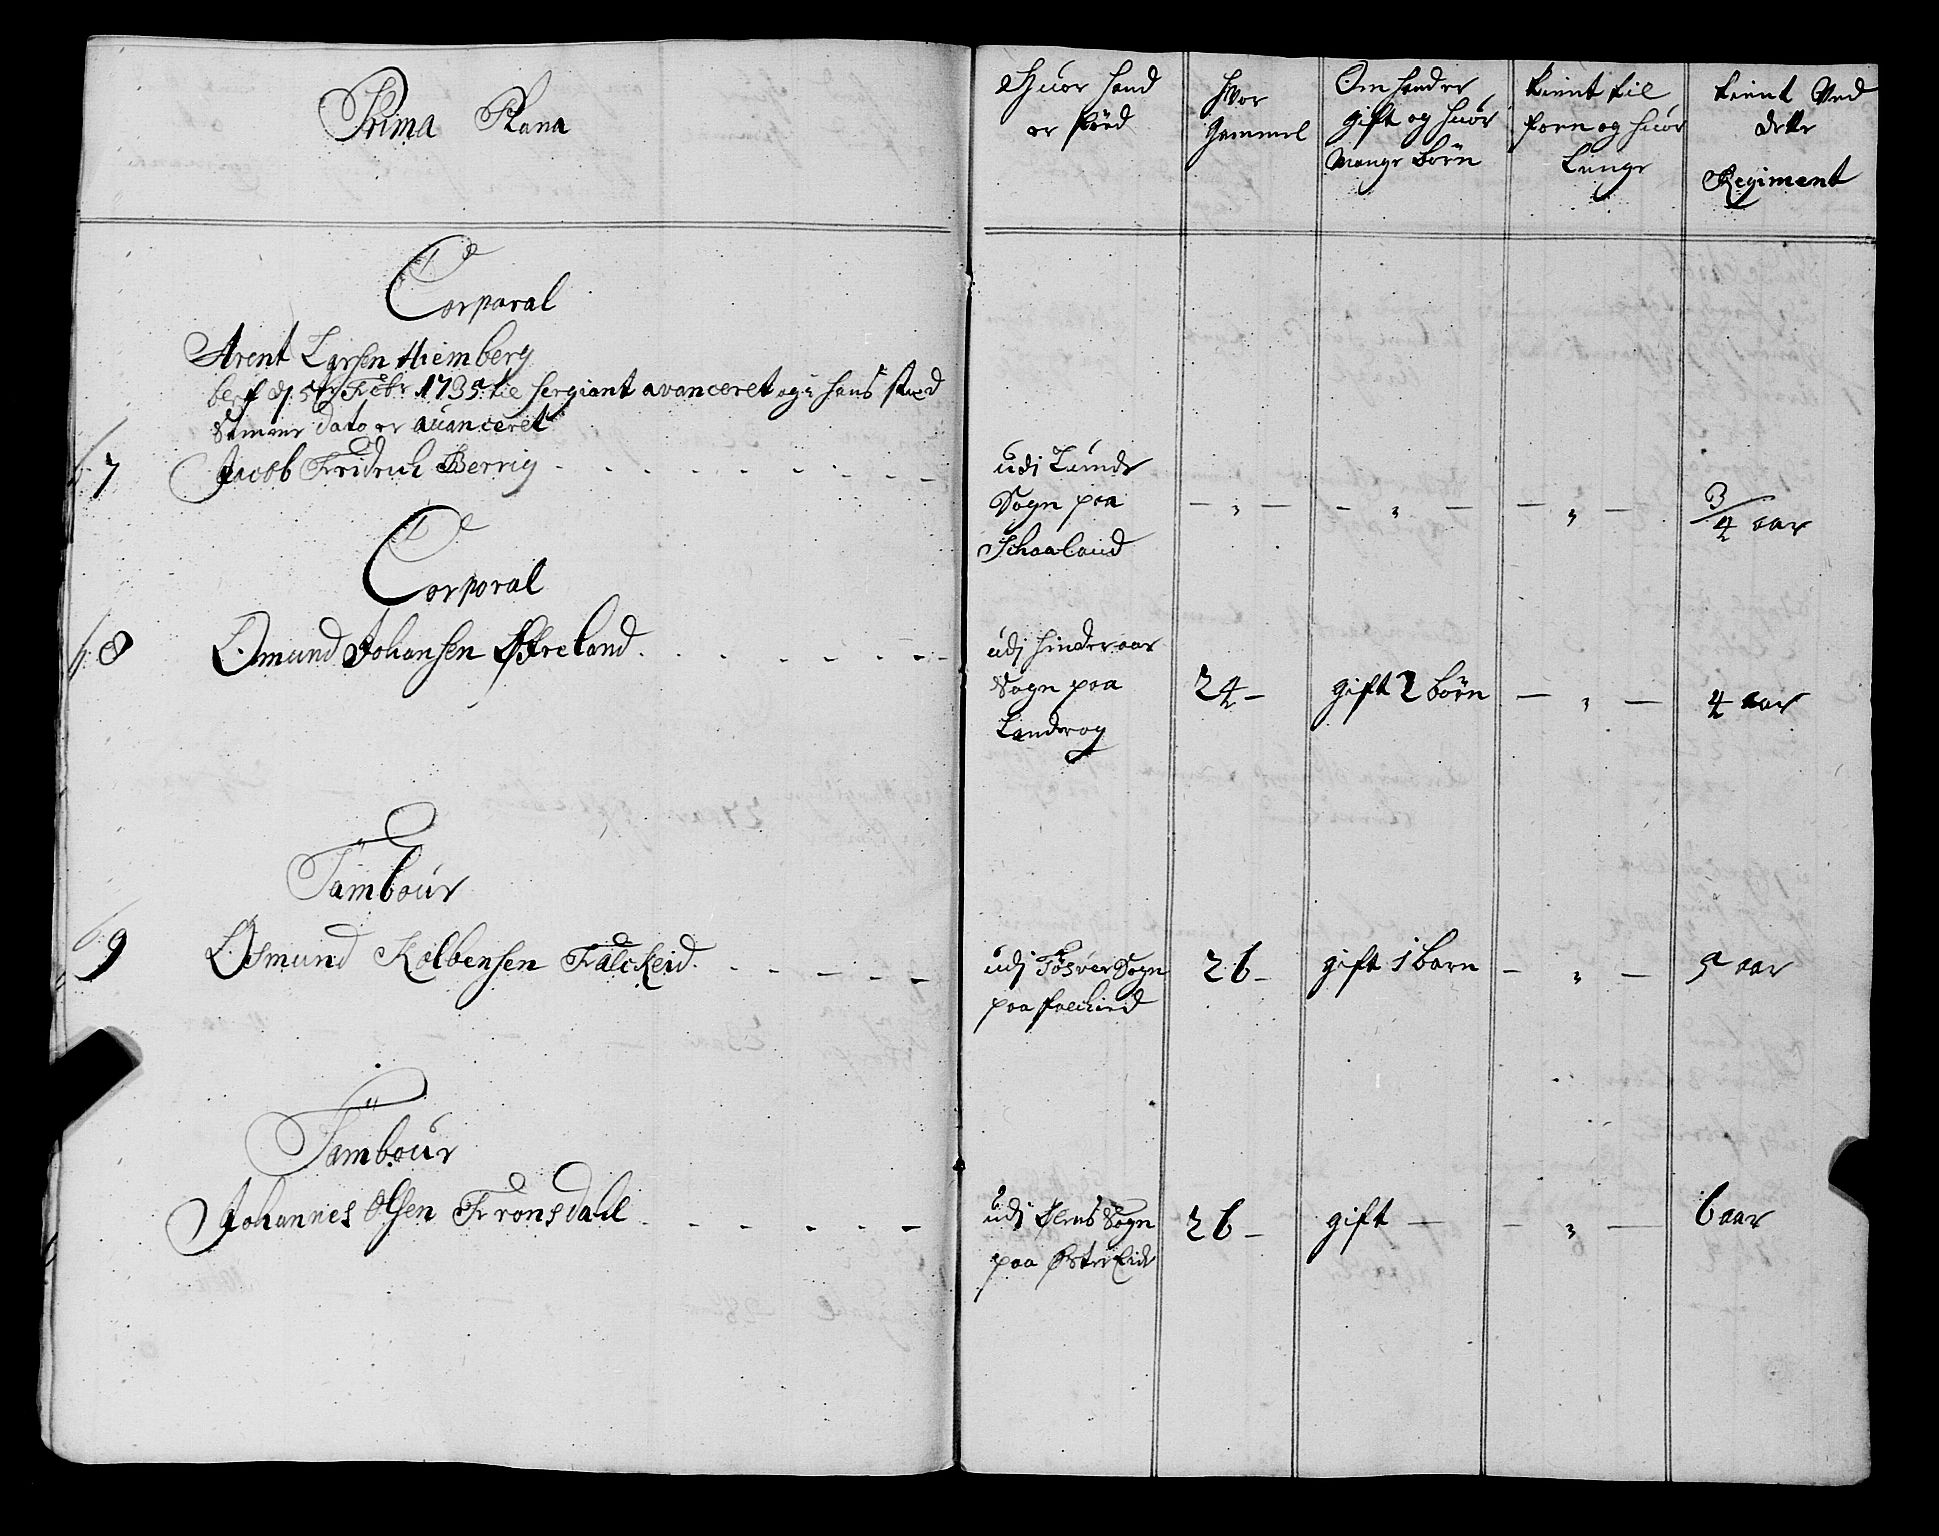 Prima Plana
Huor hand
er född
Hvor
gammel
Om hand er
gift og huor
mange börn
tient til
forn og huor
Lenge
tient Ved
dette
Regiment
Corporal
Arent Larsen Hiemberg
bers d. 5te Febr 1735 til Sergiant avanceret og i hans sted
Samme dato er auanceret
7 Jacob Fridrich Berrig
udj Lunde
Sogn paa
Schaaland
- " -
- " -
- " -
3/4 aar
Corporal
8 Osmund Johansen Østreland
udj Hinderaar
Sogn paa
Landraag
24 -
gift 2 börn
- " -
4 aar
Tambour
9 Osmund Kolbensen Falckeid
udj Tösver Sogn
paa falckeid
26 -
gift 1 barn
- " -
5 aar
Tambour
Johannes Olsen Fronsdahl
udj Sogn
paa Øster Eide
26 -
gift -
- " -
6 aar